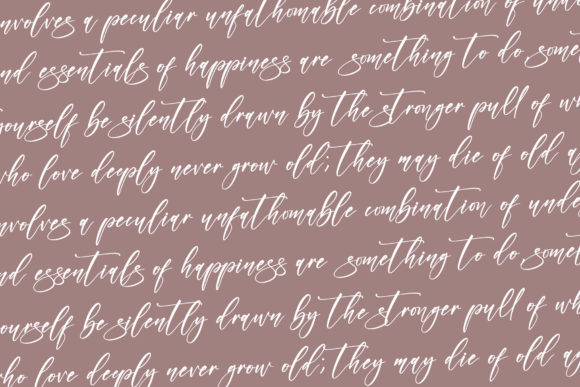 involves a peculiar unfathomable combination of unde
nd essentials of happiness are something to do, some
yourself be silently drawn by the stronger pull of wh
who love deeply never grow old; they may die of old a
involves a peculiar unfathomable combination of unde
nd essentials of happiness are something to do, some
yourself be silently drawn by the stronger pull of wh
who love deeply never grow old; they may die of old ag